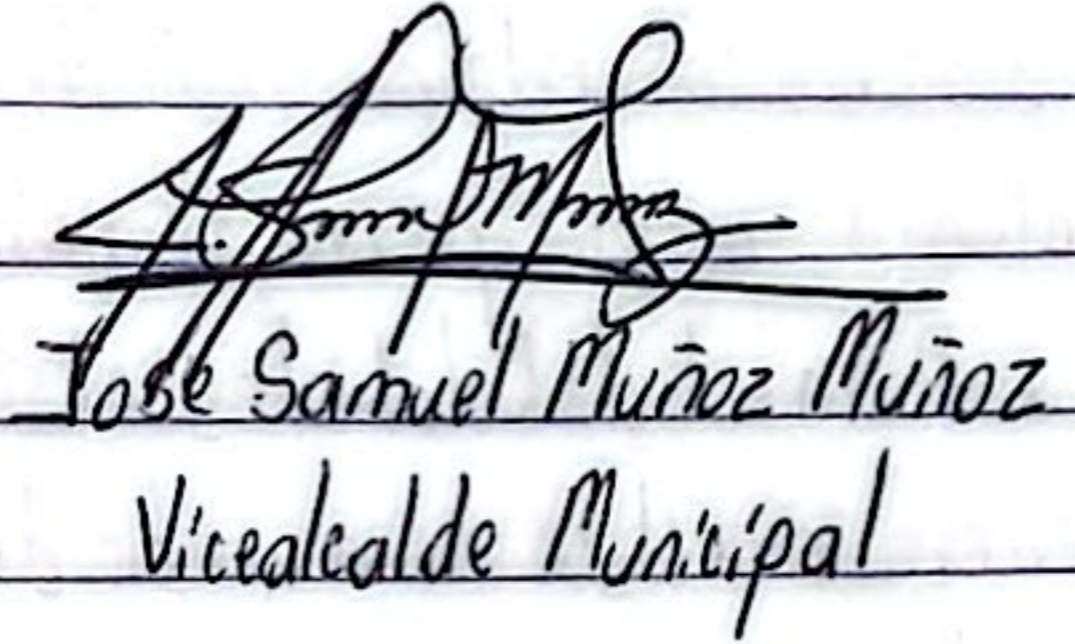 Jose Samuel Muñoz Muñoz
Vicealcalde Municipal